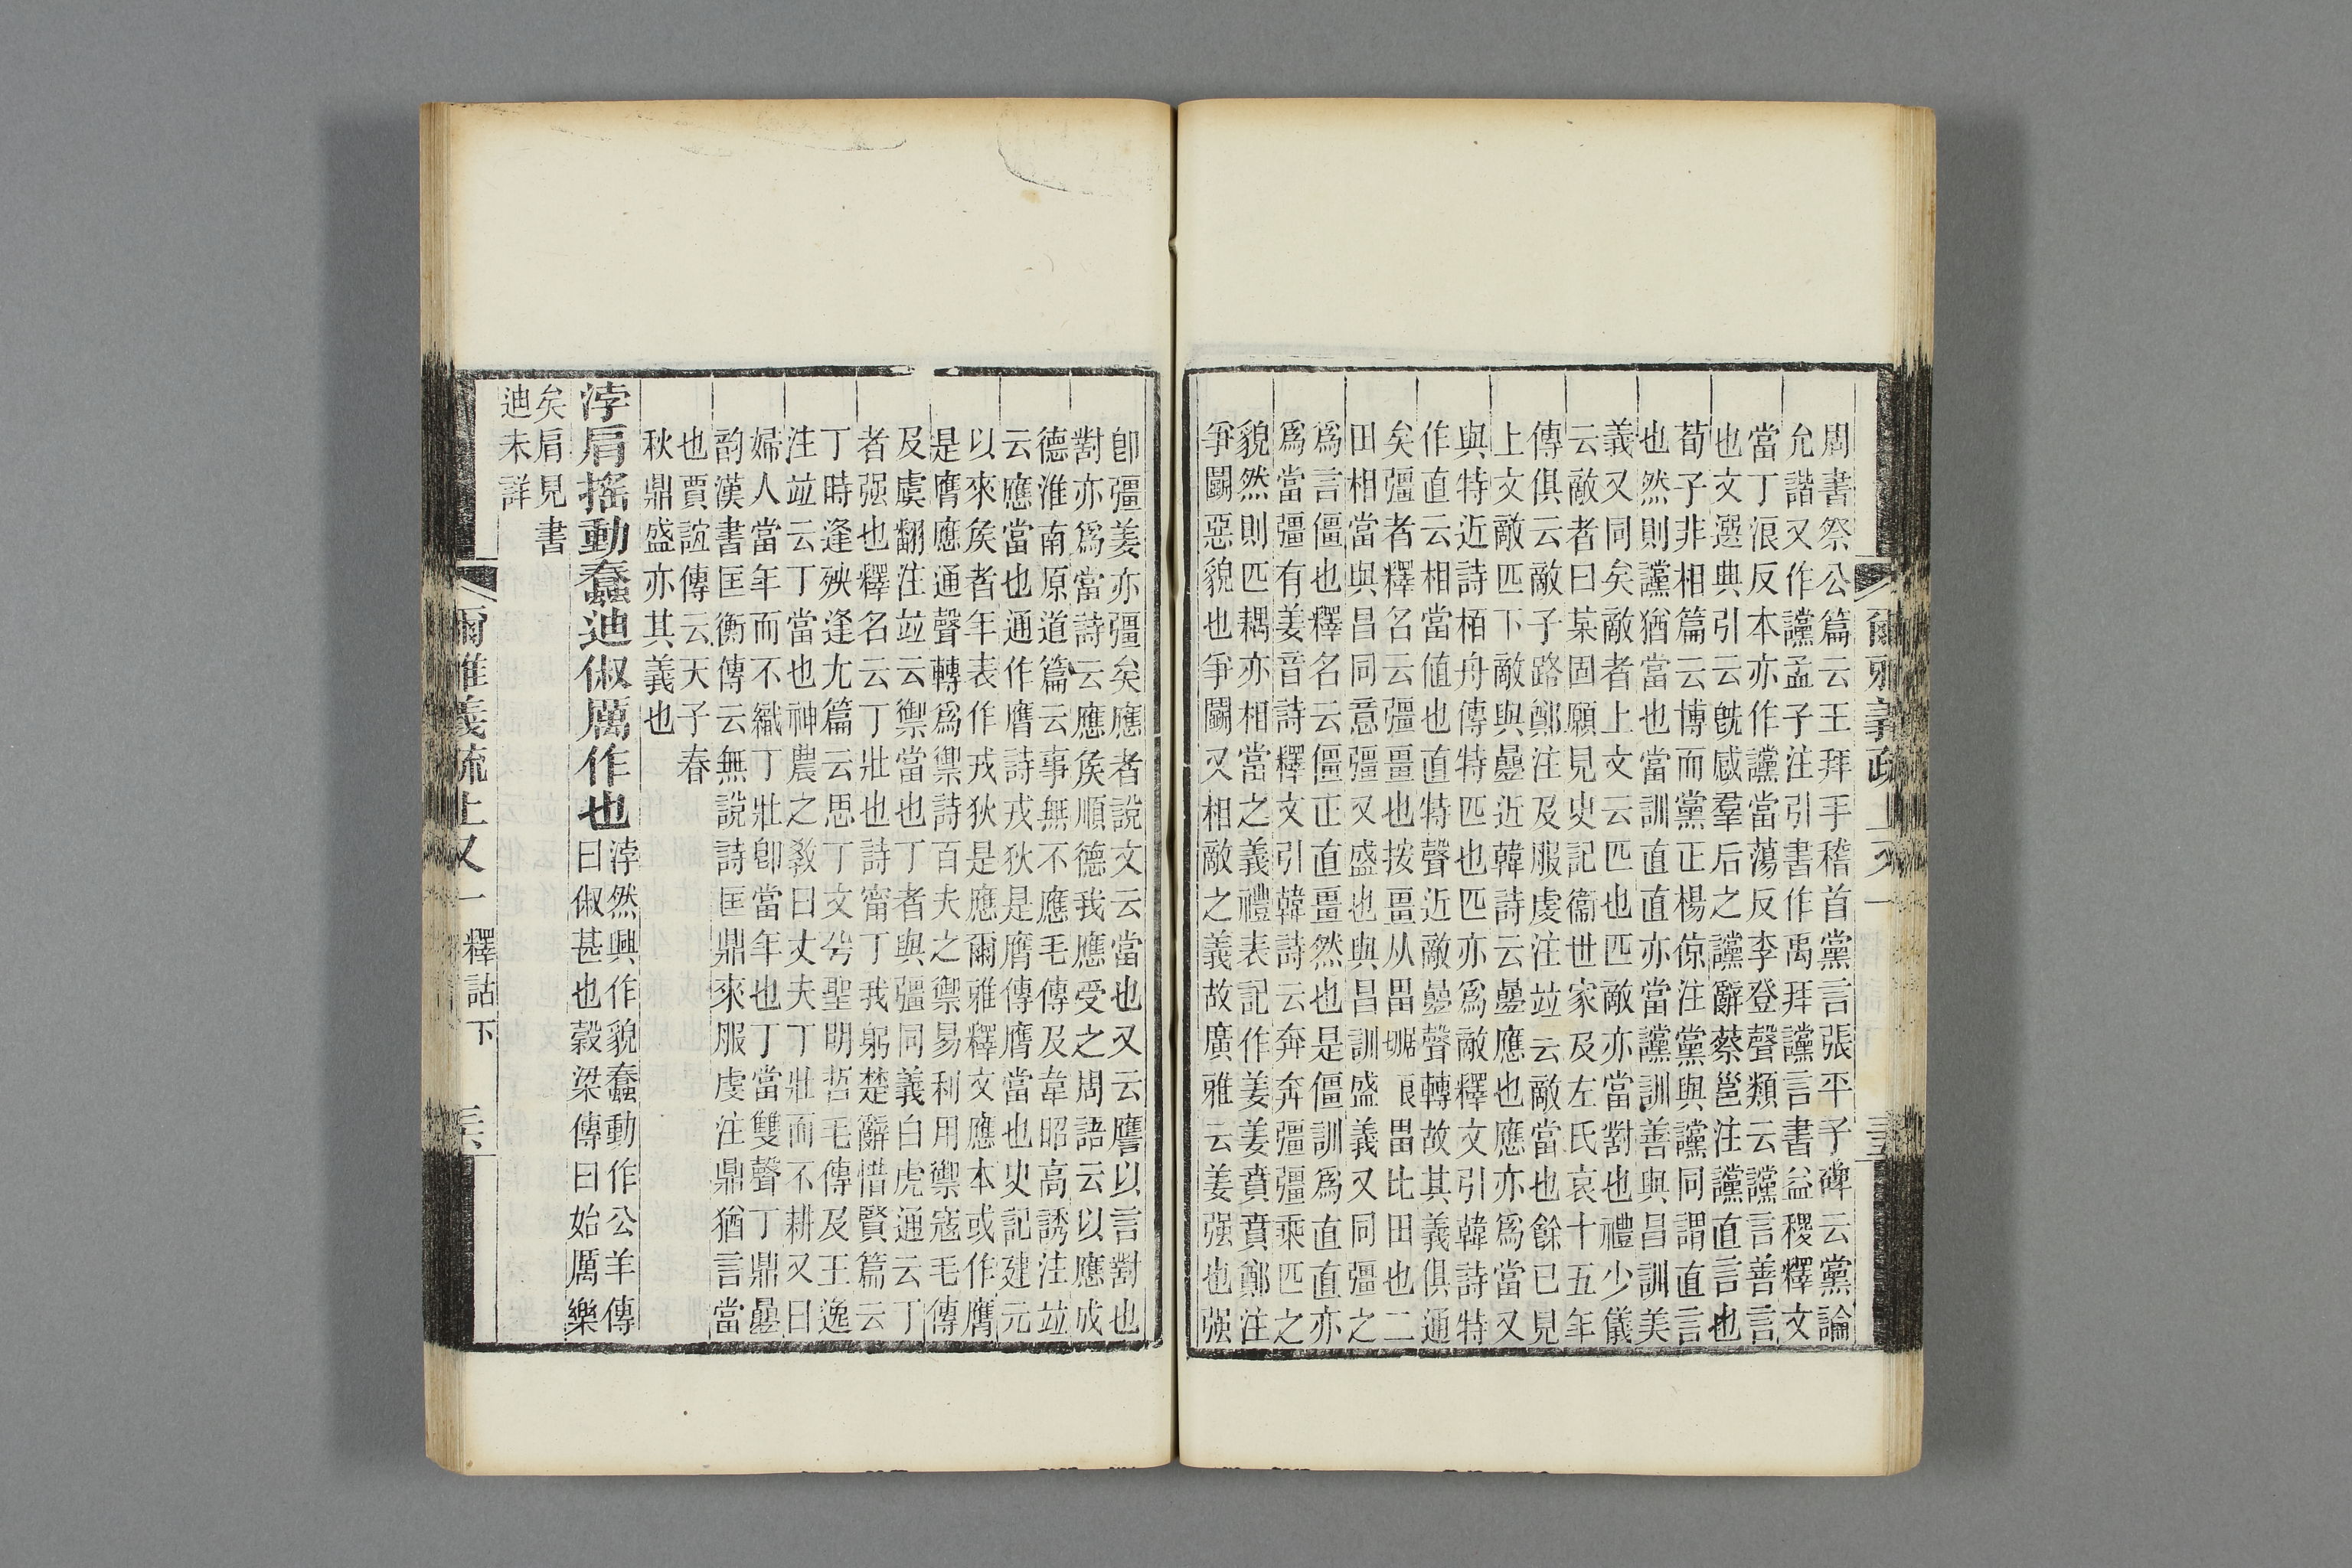 爾雅義疏上又一
周書祭公篇云王拜手稽首黨言張平子碑云黨論
允諧又作讜孟子注引書作禹拜讜言書益稷釋文
當丁浪反本亦作讜當蕩反李登聲類云讜言善言
也文選典引云旣感羣后之讜辭蔡邕注讜直言也
荀子非相篇云博而黨正楊倞注黨與讜同謂直言
也然則讜猶當也當訓直直亦當讜訓善與昌訓美
義又同矣敵者上文云匹也匹敵亦當對也禮少儀
云敵者曰某固願見史記衞世家及左氏哀十五年
傳俱云敵子路鄭注及服虔注竝云敵當也餘已見
上文敵匹下敵與畾近韓詩云畾應也應亦爲當又
與特近詩栢舟傳特匹也匹亦爲敵釋文引韓詩特
作直云相當值也直特聲近敵畾聲轉故其義俱通
矣彊者釋名云彊畺也按畺从畕畕比田也二
田相當與昌同意彊又盛也與昌訓盛義又同彊之
爲言僵也釋名云僵正直畺然也是僵訓爲直直亦
爲當彊有姜音詩釋文引韓詩云奔奔彊彊乘匹之
貌然則匹耦亦相當之義禮表記作姜姜賁賁鄭注
爭鬭惡貌也爭鬭又相敵之義故廣雅云姜强也强
卽彊姜亦彊矣應者說文云當也又云譍以言對也
對亦爲當詩云應矦順德我應受之周語云以應成
德淮南原道篇云事無不應毛傳及韋昭高誘注竝
云應當也通作膺詩戎狄是膺傳膺當也史記建元
以來矦者年表作戎狄是應爾雅釋文應本或作膺
是膺應通聲轉爲禦詩百夫之禦易利用禦寇毛傳
及虞翻注竝云禦當也丁者與彊同義白虎通云丁
者强也釋名云丁壯也詩甯丁我躬楚辭惜賢篇云
丁時逢殃逢尤篇云思丁文兮聖明哲毛傳及王逸
注竝云丁當也神農之敎曰丈夫丁壯而不耕又曰
婦人當年而不織丁壯卽當年也丁當雙聲丁鼎畾
韵漢書匡衡傳云無說詩匡鼎來服虔注鼎猶言當
也賈誼傳云天子春
秋鼎盛亦其義也
浡肩搖動蠢迪俶厲作也
浡然興作貌蠢動作公羊傳
曰俶甚也穀梁傳曰始厲樂
矣肩見書
迪未詳
爾雅義疏上又一
釋詁下